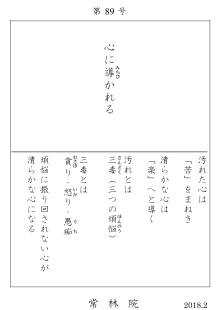 第 89 号
心に導かれる
汚れた心は
「苦」をまねき
清らかな心は
「楽」へと導く
汚れとは
三毒(三つの煩悩)
三毒とは
貪り・怒り・愚痴
煩悩に振り回されない心が
清らかな心になる
常林院
2018.2